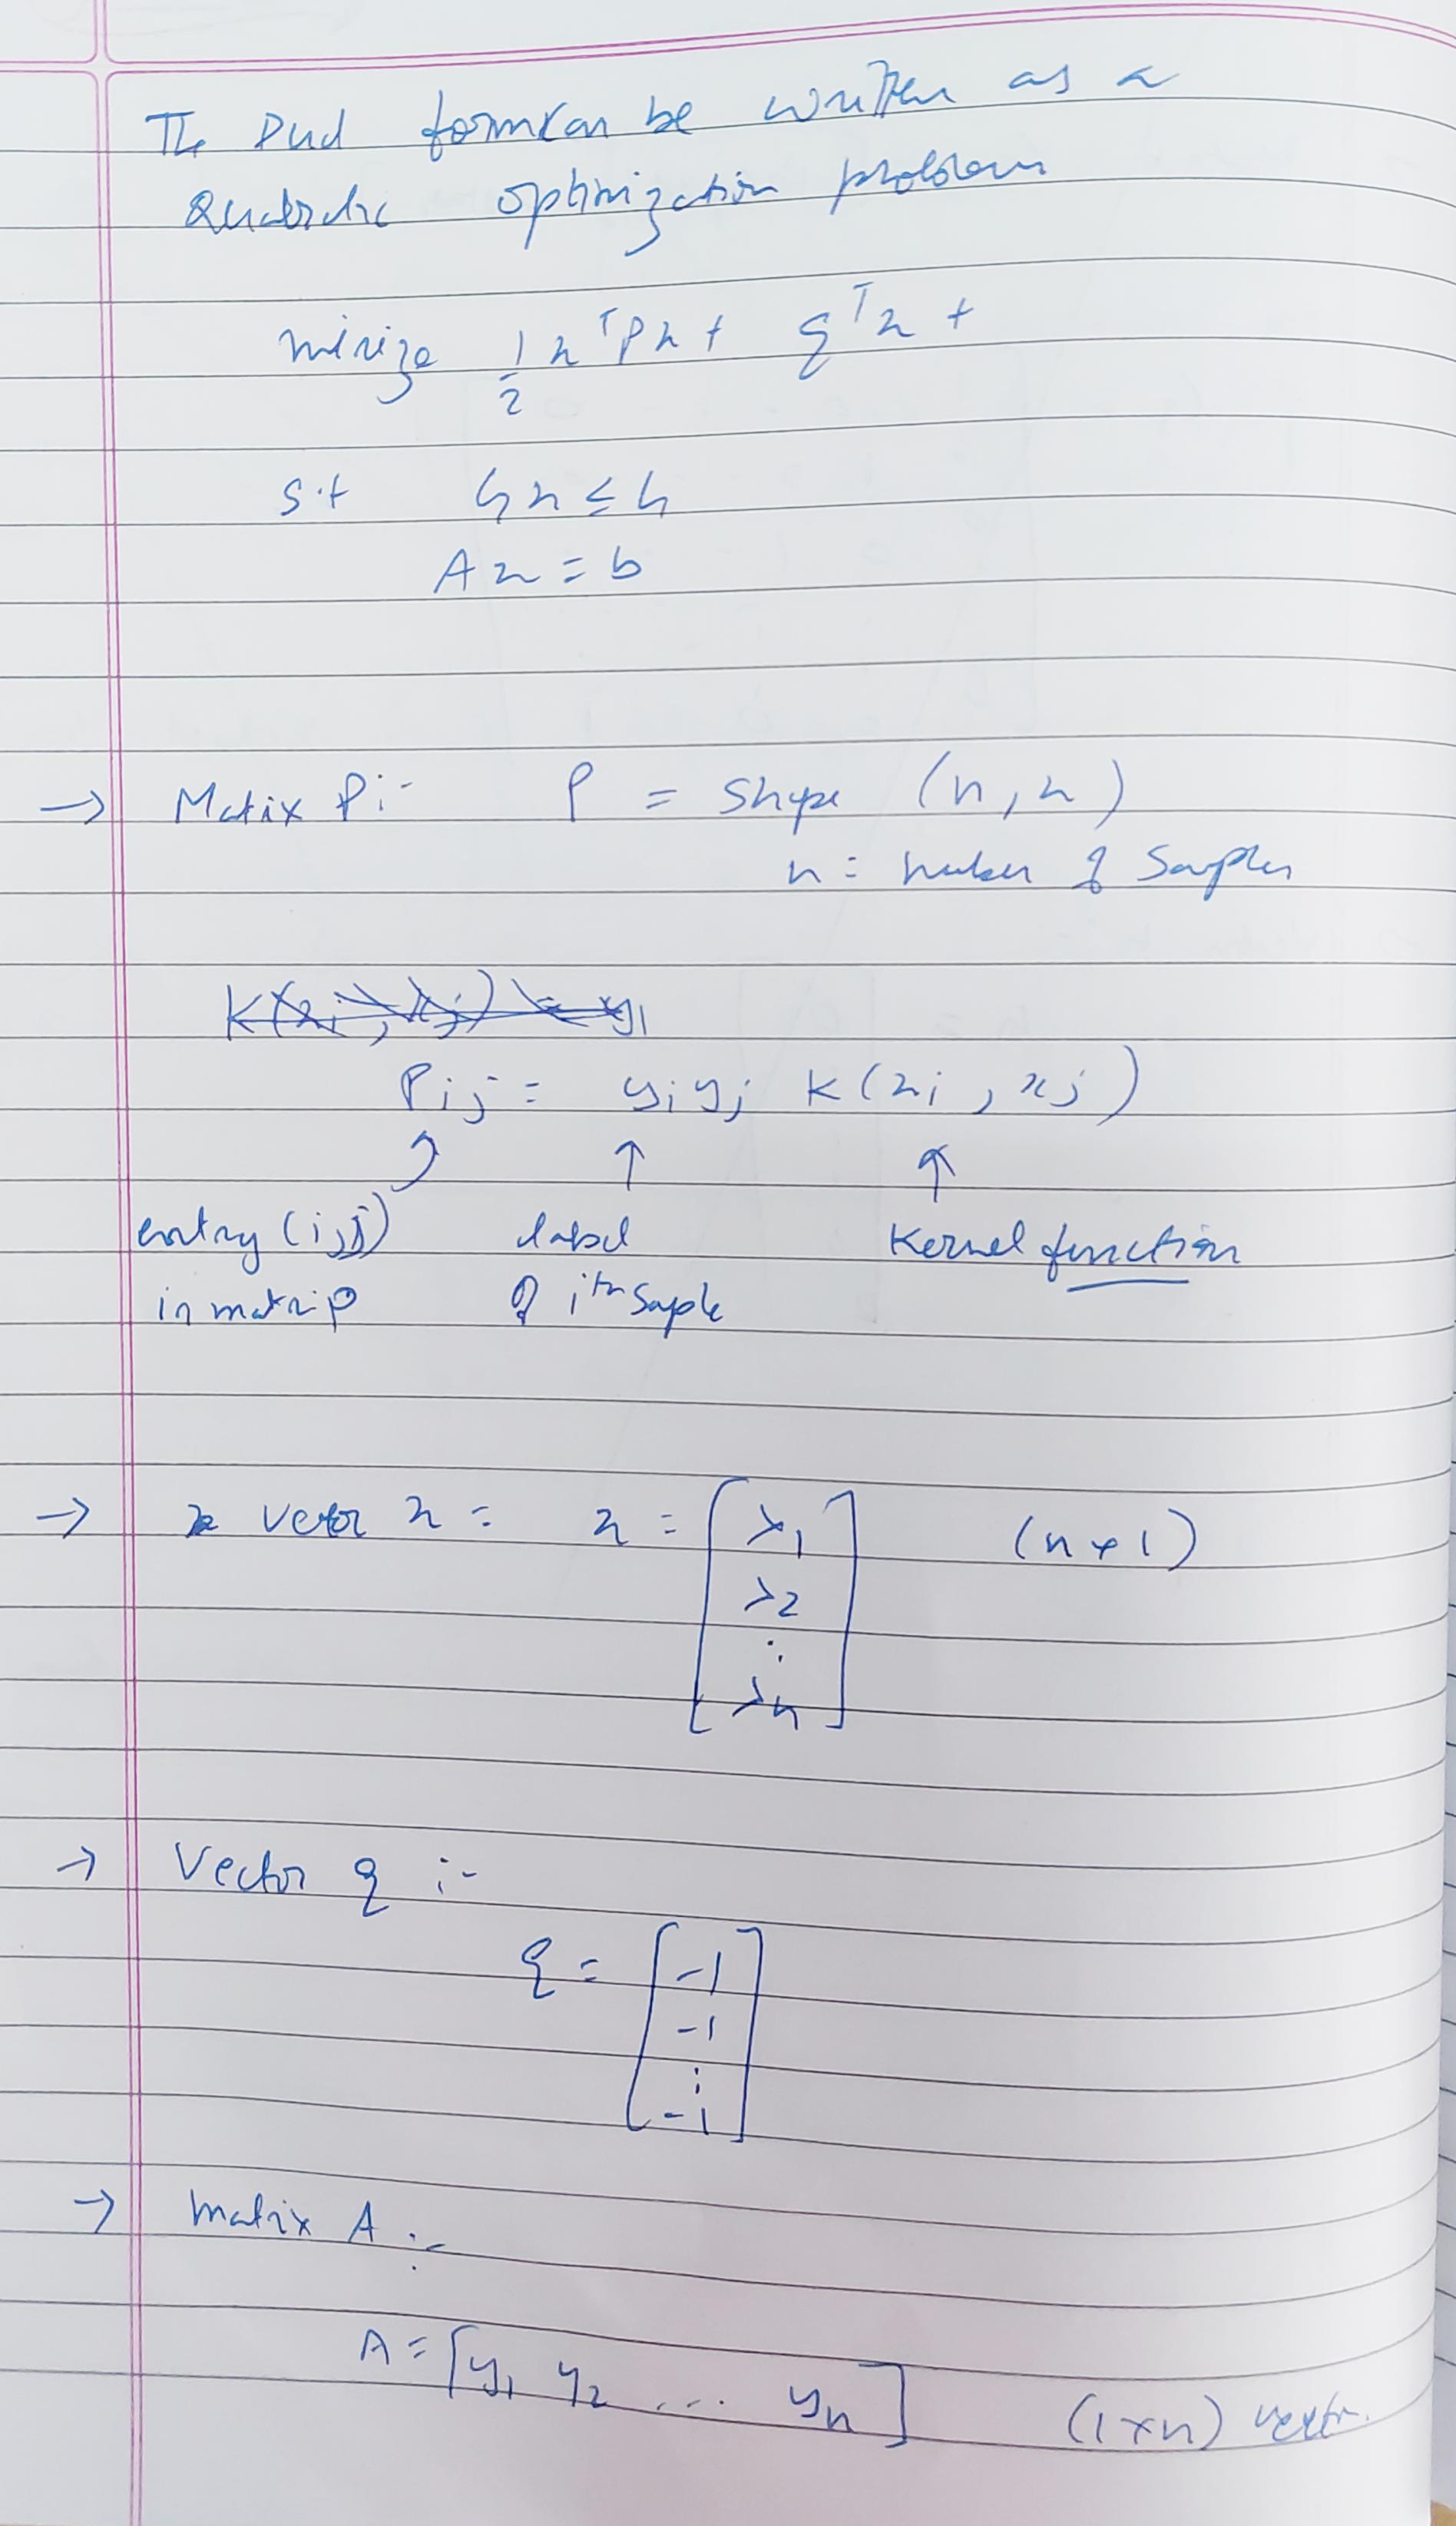 The Dual form can be written as a
Quadratic optimization problem
minimize 1/2 x^T P x + q^T x +
s.t Gx ≤ h
Ax = b
→ Matrix P:- P = shape (n, n)
n = number of Samples
K(xi, xj) = y1
Pij = yiyj K(xi, xj)
↑ ↑ ↑
entry (i,j) label Kernel function
in matrix P of ith sample
→ vector x = x = [λ1 (n×1)
λ2
⋮
λn]
→ Vector q :-
q = [-1
-1
⋮
-1]
→ Matrix A :-
A = [y1 y2 ... yn] (1×n) vector.